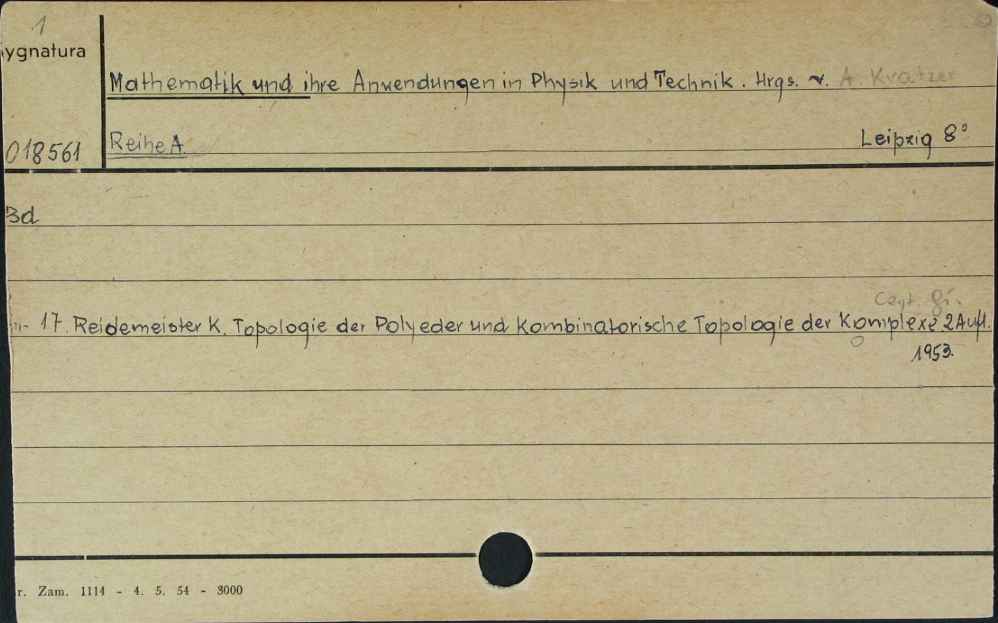 1
ygnatura
Mathematik und ihre Anwendungen in Physik und Technik. Hrgs. v. A. Kratzer
018561
Reihe A
Leipzig 8°
Bd
17. Reidemeister K. Topologie der Polyeder und kombinatorische Topologie der Komplexe, 2 Aufl.
1953.
r. Zam. 1114 - 4. 5. 54 - 3000